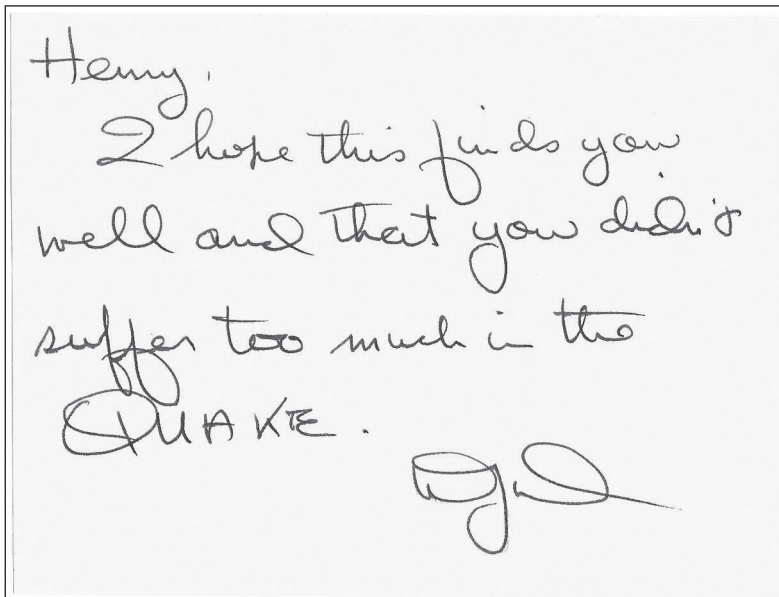 Henry,
I hope this finds you
well and that you didn't
suffer too much in the
QUAKE.